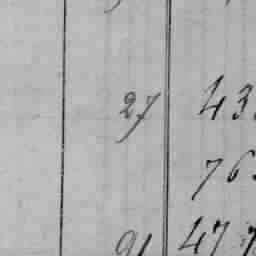 27 43
76
91 477